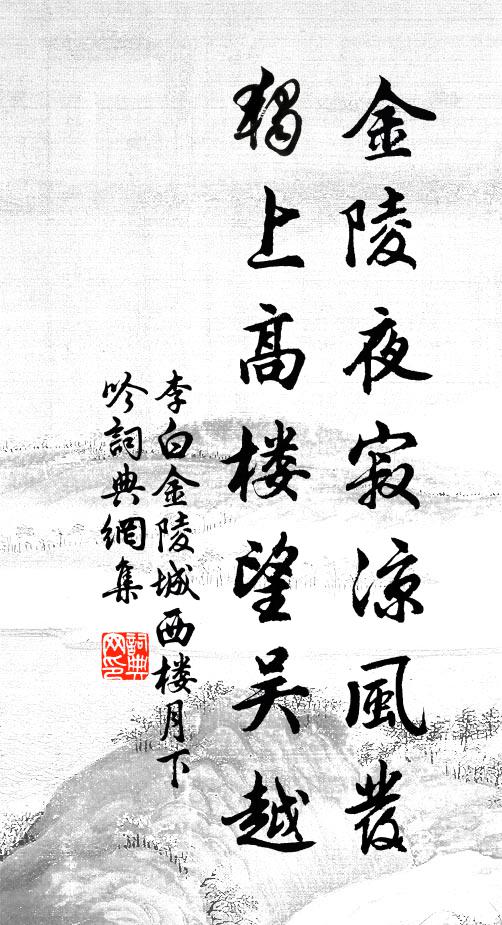 金陵夜寂涼風發
獨上高楼望吴越
李白金陵城西楼月下
吟詞典網集
詞典网印